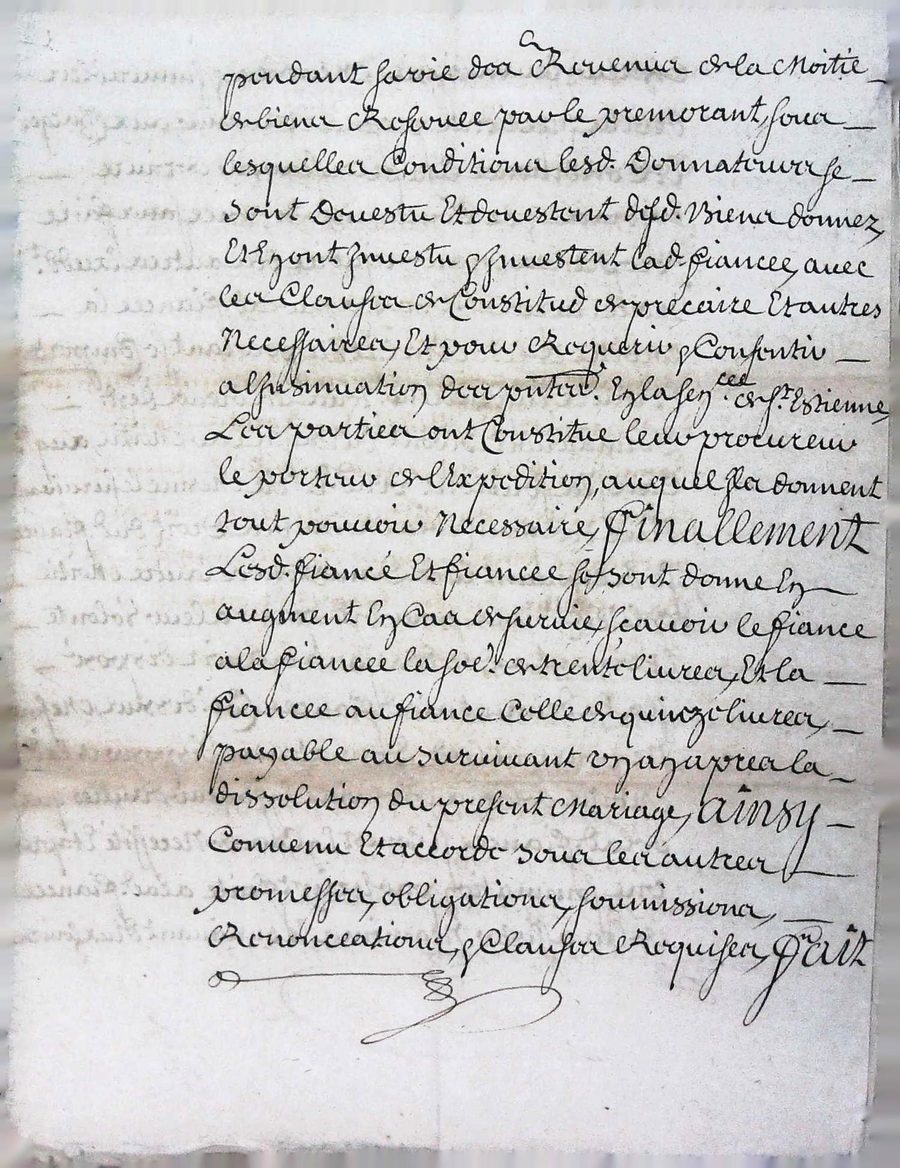 pendant sa vie des Revenus de la Moitie
de biens Reservee par le premorant, sous
lesquelles Conditions lesd. Donnateurs se
sont Devestu Et devestent desd. Biens donnez,
Et En ont Investu & Investent lad. fiancee, avec
les Clauses de Constitud de precaire Et autres
Necessaires, Et pour Requerir & Consentir
a l'Insinuation des pntes. En la sen.cee de St. Estienne,
Les parties ont Constitue leur procureur
le porteur de l'Expedition, auquel Ils donnent
tout pouvoir Necessaire, finallement
Lesd. fiancé Et fiancee se sont donne En
augment En Cas de survie, scavoir le fiance
a la fiancee la so.e de trente livres, Et la
fiancee au fiance Celle de quinze livres,
payable au survivant un an apres la
dissolution du present Mariage, ainsy
Convenu Et accorde sous les autres
promesses, obligations, soumissions,
Renonceations, & Clauses Requises, fait